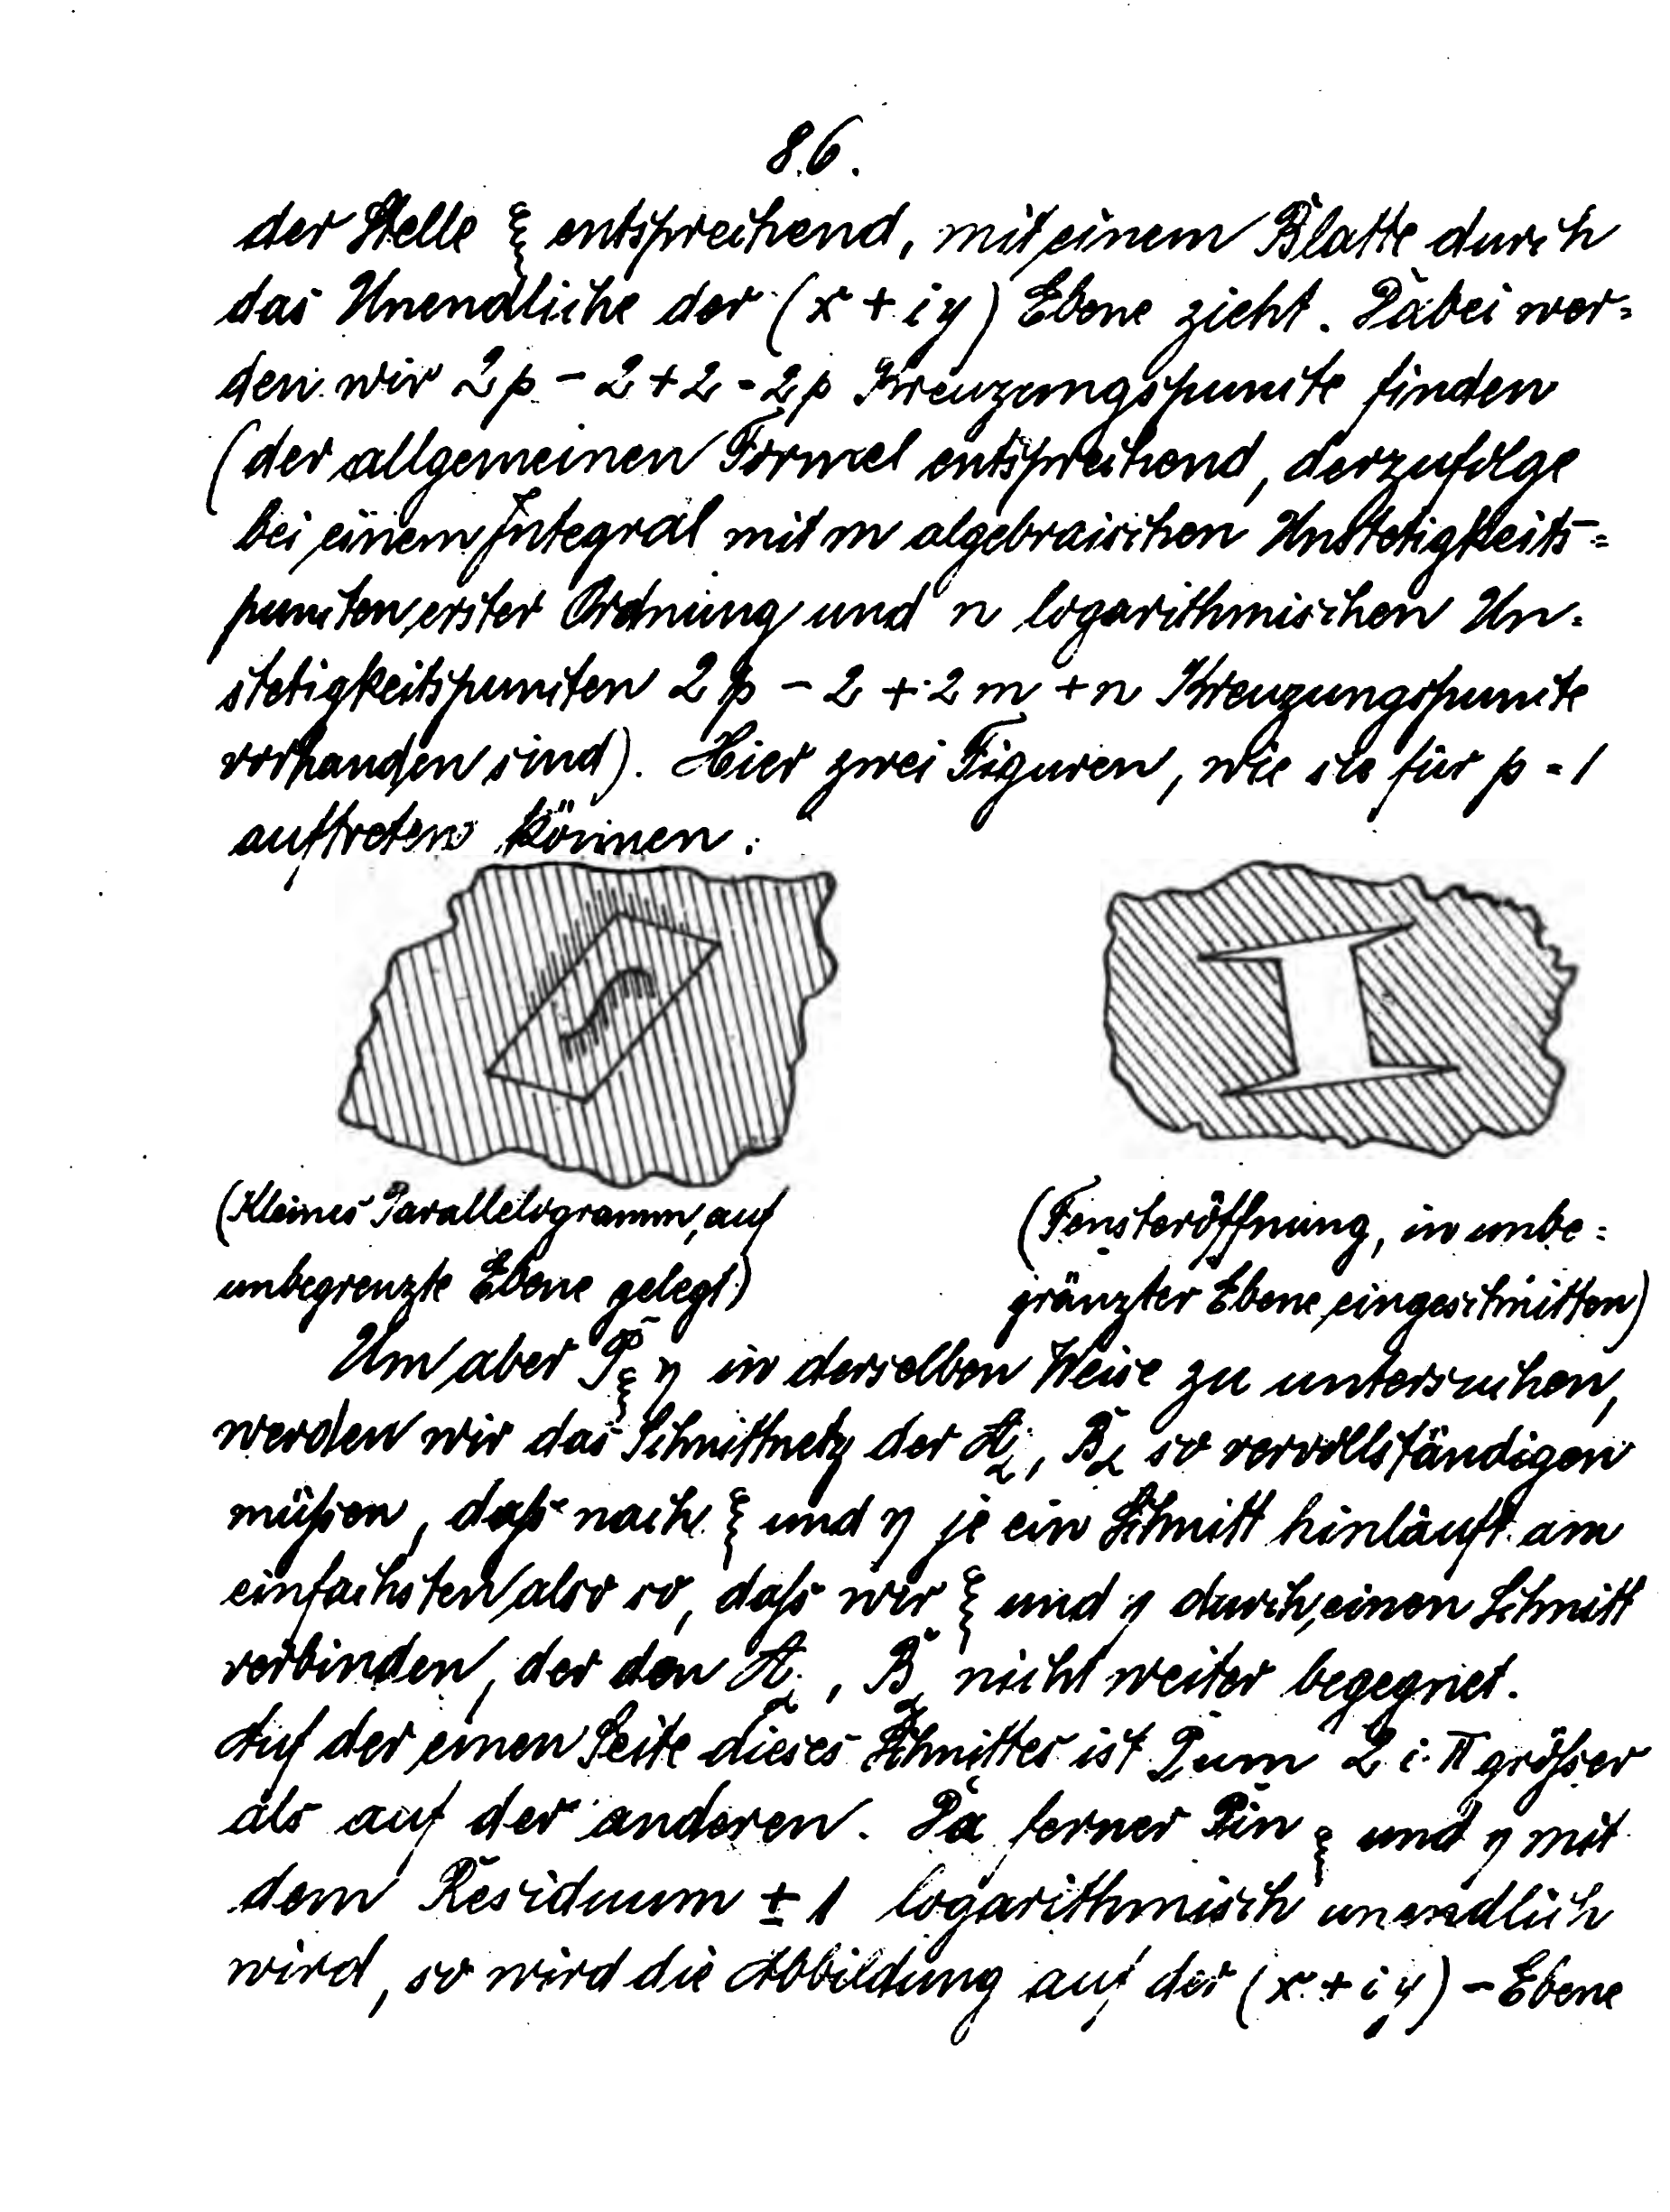 86.
der Stelle ξ entsprechend, mit einem Blatte durch
das Unendliche der (x + iy) Ebene zieht. Dabei wer=
den wir 2p - 2 + 2 = 2p Kreuzungspuncte finden
(der allgemeinen Formel entsprechend, derzufolge
bei einem Integral mit m algebraischen Unstetigkeits=
puncten erster Ordnung und n logarithmischen Un=
stetigkeitspuncten 2p - 2 + 2m + n Kreuzungspuncte
vorhanden sind). Hier zwei Figuren, wie sie für p = 1
auftreten können:
(Kleines Parallelogramm, auf
unbegrenzte Ebene gelegt.)
(Fensteröffnung, in unbe=
gränzter Ebene eingeschnitten)
Um aber P ξ η in derselben Weise zu untersuchen,
werden wir das Schnittnetz der A_α, B_α so vervollständigen
müßen, daß nach ξ und η je ein Schnitt hinläuft am
einfachsten also so, daß wir ξ und η durch einen Schnitt
verbinden, der den A_α, B_α nicht weiter begegnet.
Auf der einen Seite dieses Schnittes ist P um 2iπ größer
als auf der anderen. Da ferner P in ξ und η mit
dem Residuum ± 1 logarithmisch unendlich
wird, so wird die Abbildung auf der (x + iy) - Ebene